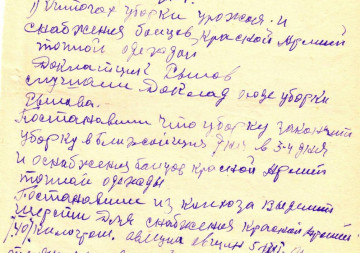 1) О итогах уборки урожая и
снабжения бойцов Красной Армии
тёплой одеждой
Докладчик Рылов
слушали Доклад о ходе уборки
Рылова.
Постановили что уборку закончит
уборку в ближайшие дни в 3-4 дня
и снабжения бойцов красной Армии
тёплой одежды
Постановили из колхоза выделит
шерсти для снабжения Красной Армии
40 килограм. овчин 5 шт.